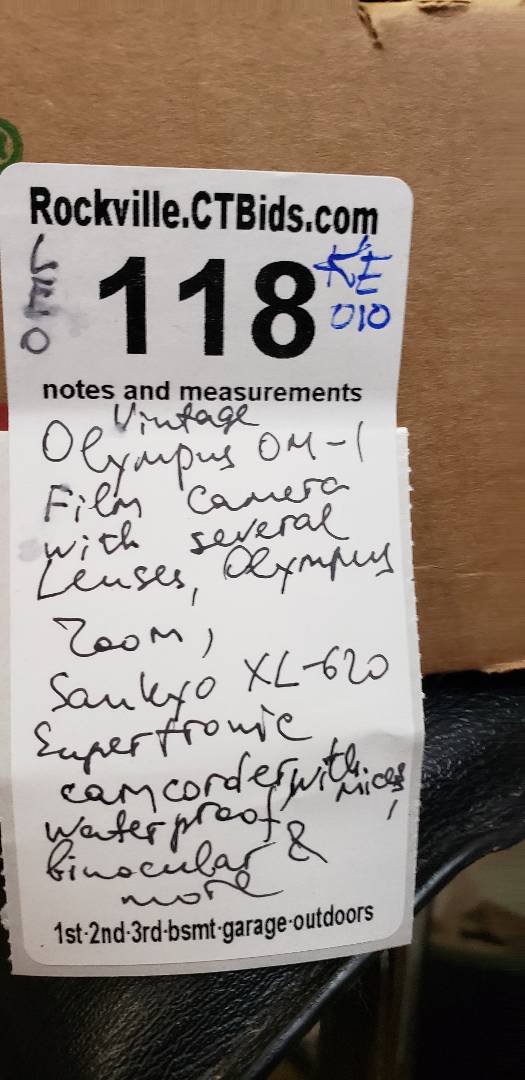 Rockville.CTBids.com
118
KE
010
notes and measurements
Vintage
Olympus OM-1
Film Camera
with several
Lenses, Olympus
Zoom,
Sankyo XL-620
Supertronic
camcorder, with mices,
waterproof
binocular &
more
1st·2nd·3rd·bsmt·garage·outdoors